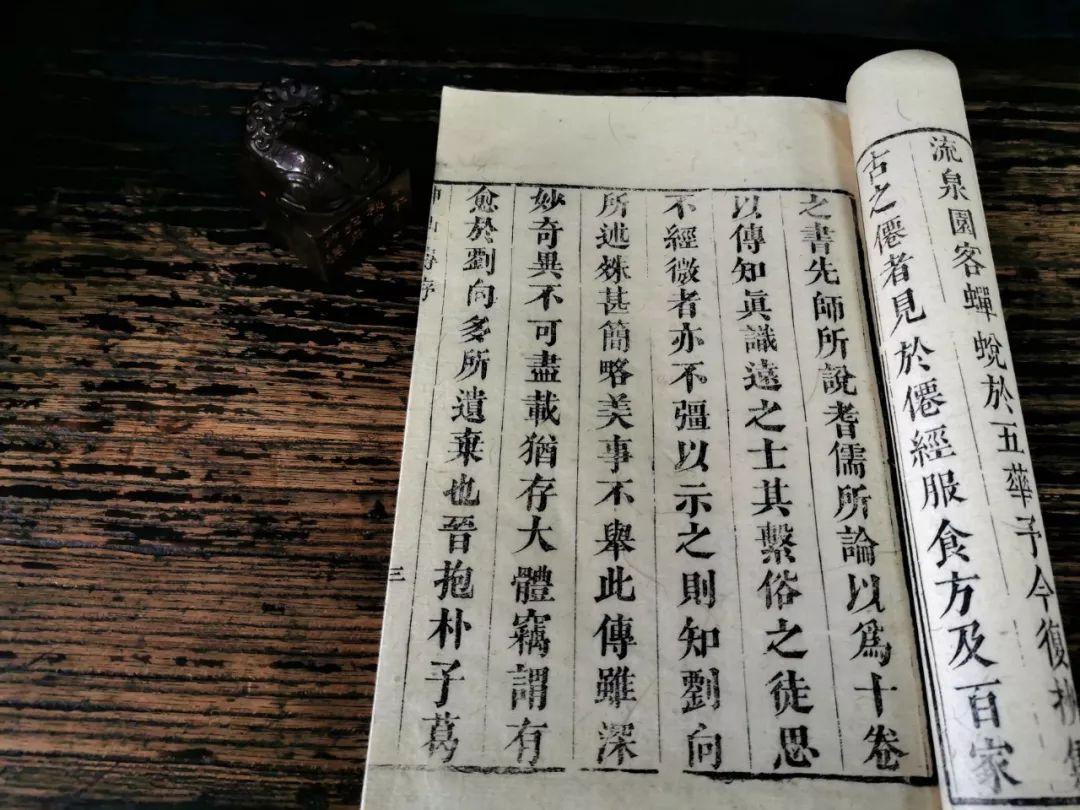 流泉園客蟬蛻於五華予今復
古之僊者見於僊經服食方及百家
之書先師所說耆儒所論以爲十卷
以傳知眞識遠之士其繫俗之徒思
不經微者亦不彊以示之則知劉向
所述殊甚簡略美事不舉此傳雖深
妙奇異不可盡載猶存大體竊謂有
愈於劉向多所遺棄也晉抱朴子葛
三